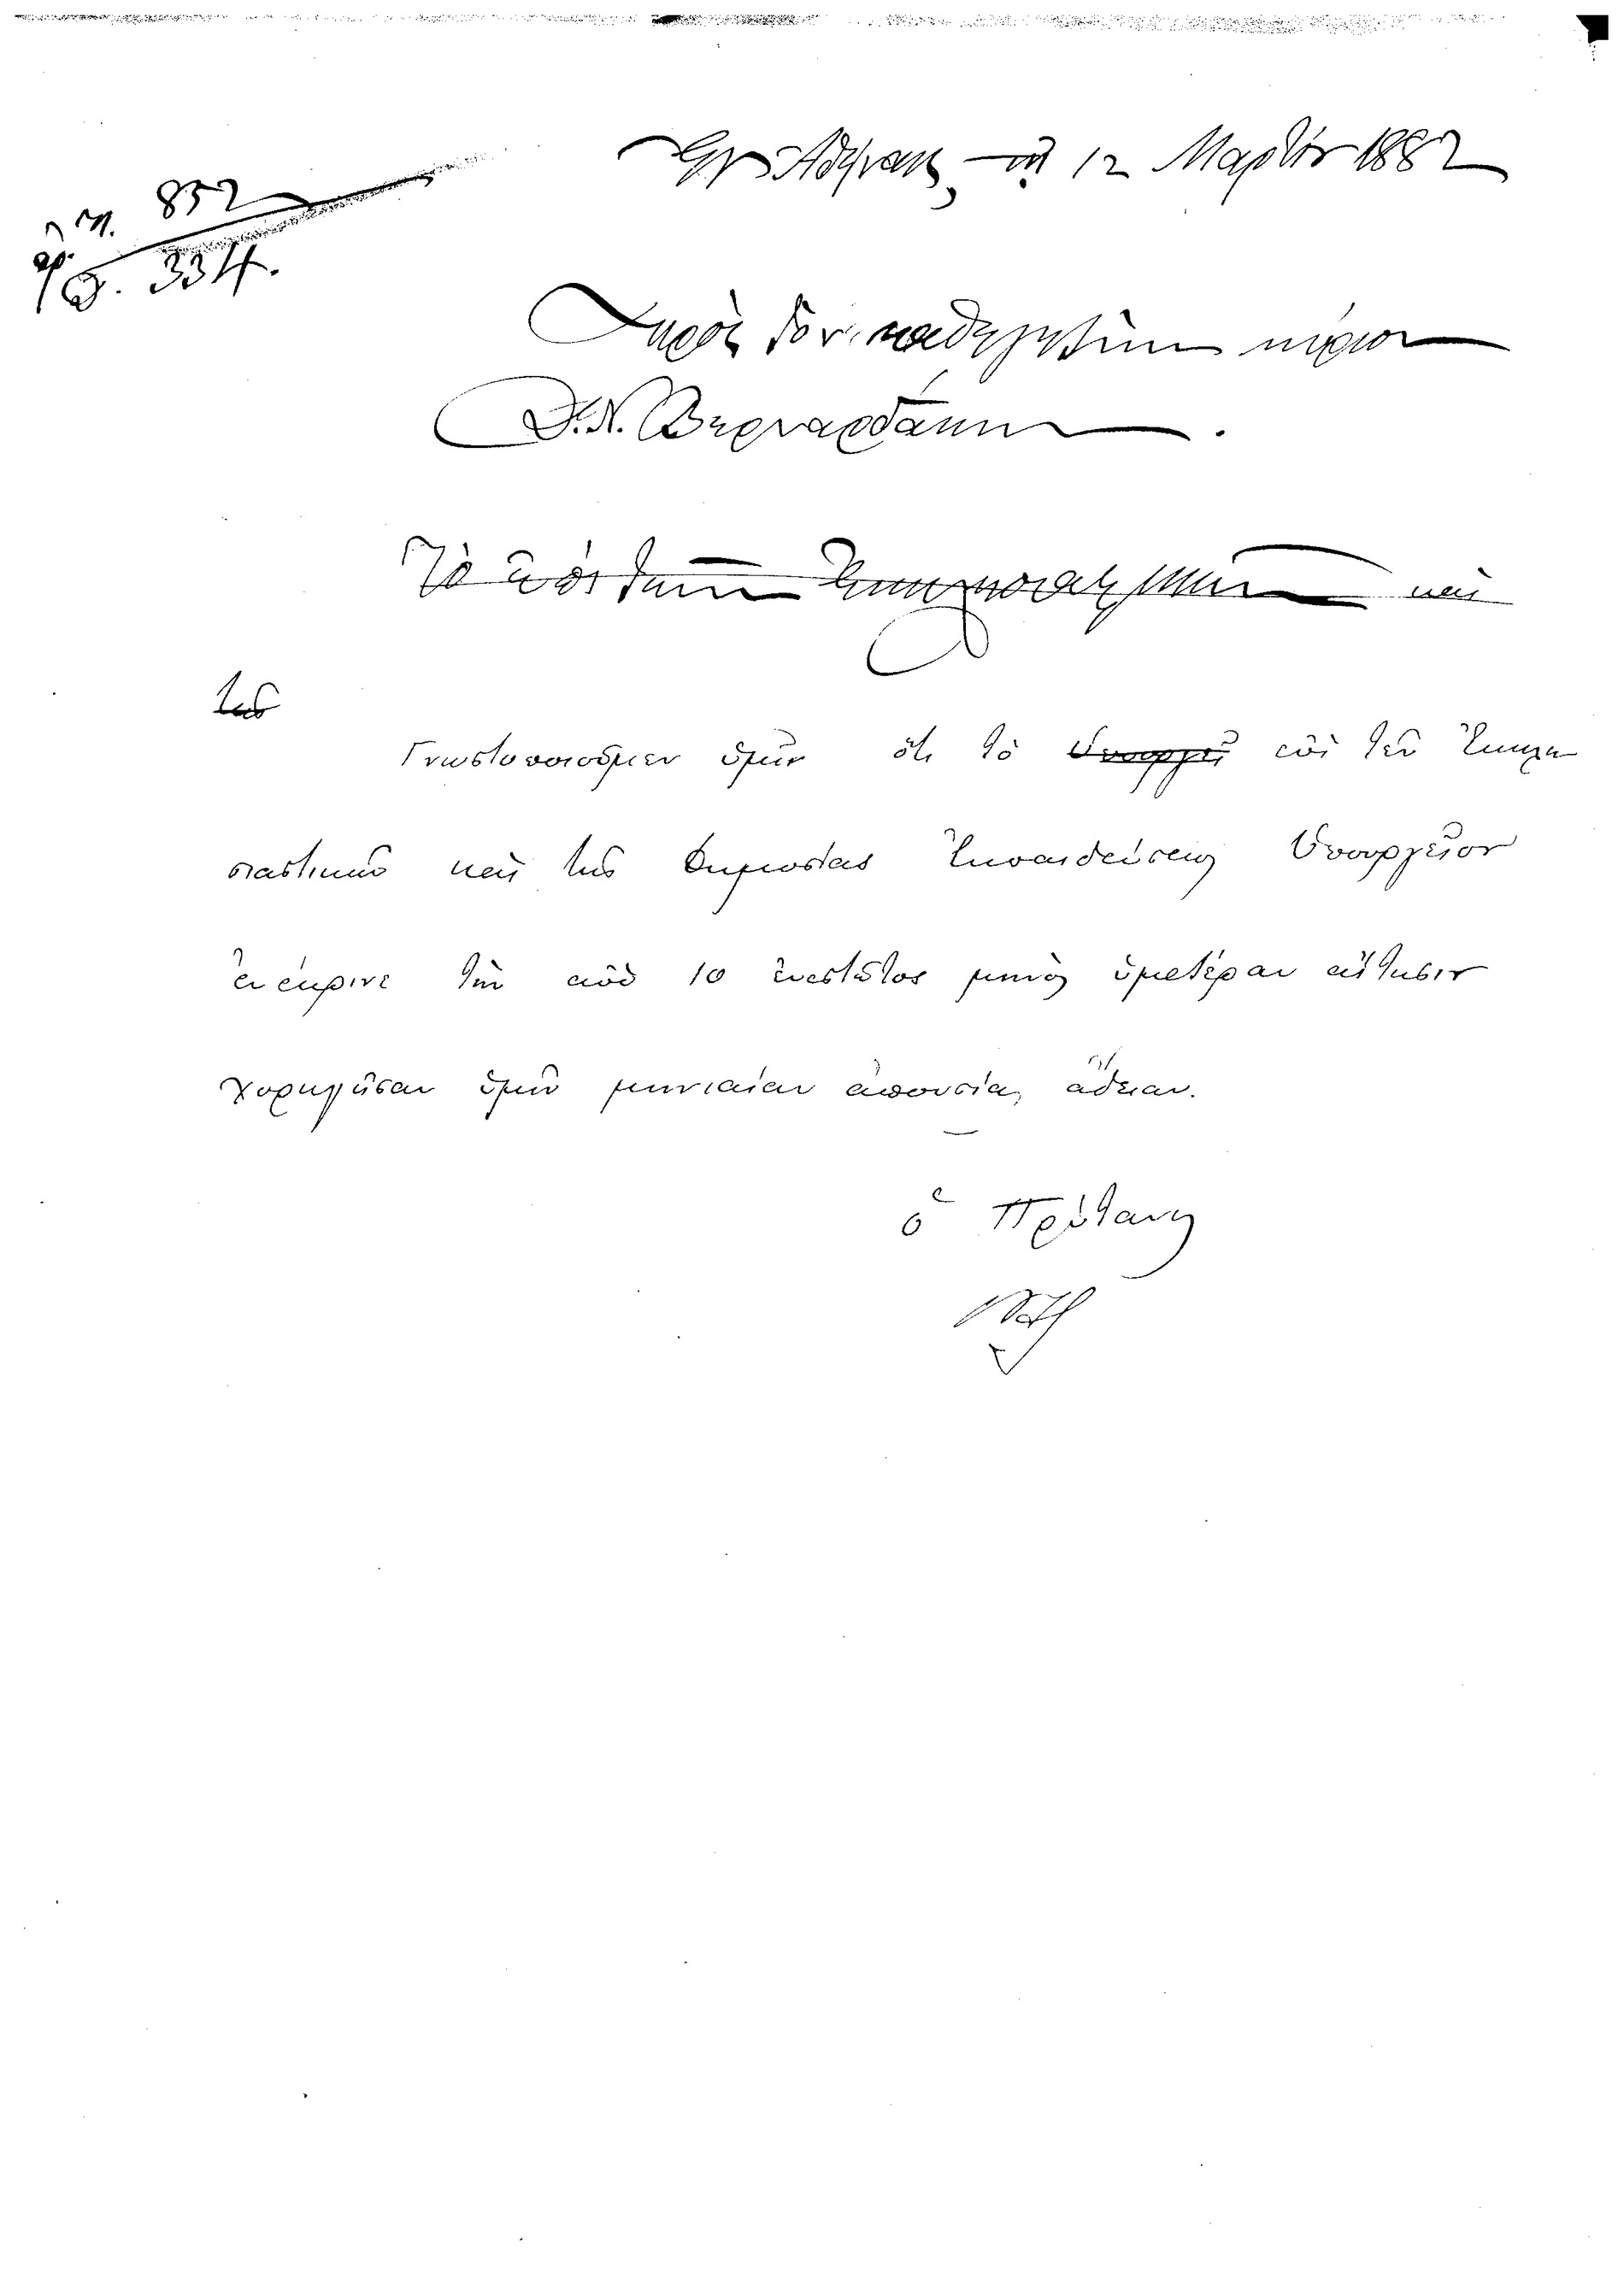 Ἐν Ἀθήναις τῇ 12 Μαρτίου 1882
π. 852
δ. 334.
Πρὸς τὸν καθηγητὴν κύριον
Δ. Ν. Βερναρδάκην.
Τὸ ἐπὶ τῶν Ἐκκλησιαστικῶν καὶ
τῆς
Γνωστοποιοῦμεν ὑμῖν ὅτι τὸ Ὑπουργεῖ ἐπὶ τῶν Ἐκκλη
σιαστικῶν καὶ τῆς Δημοσίας Ἐκπαιδεύσεως Ὑπουργεῖον
ἐνέκρινε τὴν ἀπὸ 10 ἐνεστῶτος μηνὸς ὑμετέραν αἴτησιν
χορηγῆσαν ὑμῖν μηνιαίαν ἀπουσίας ἄδειαν.
ὁ Πρύτανις